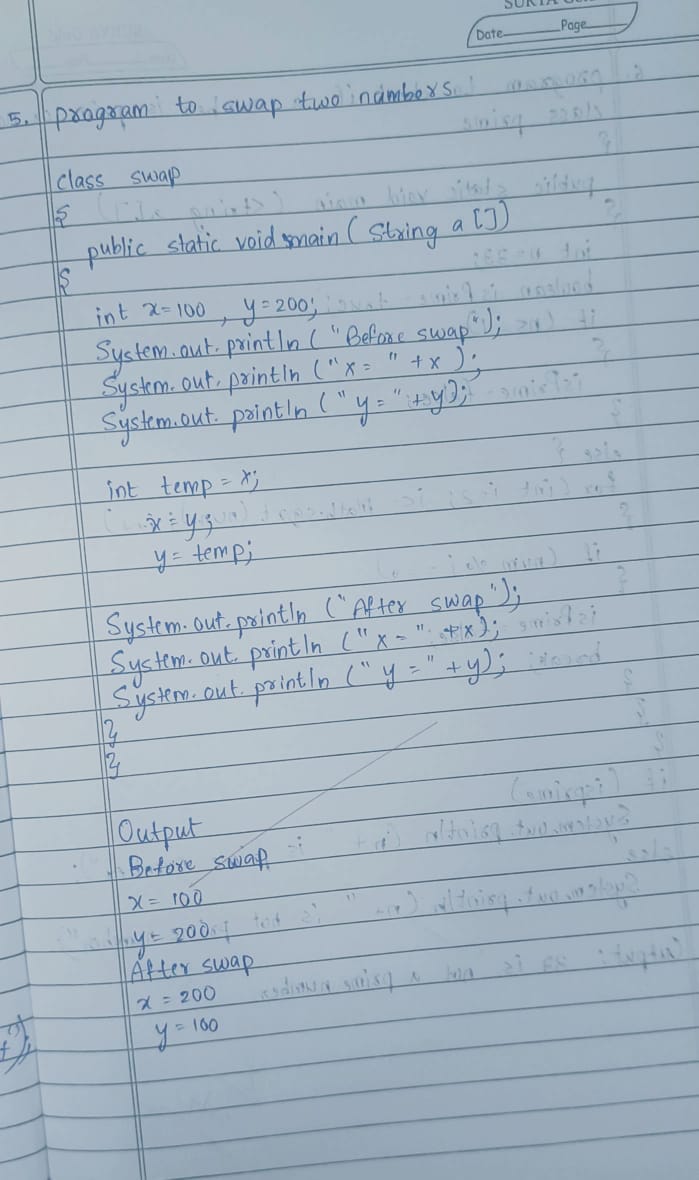 Date Page
5. program to swap two numbers
class swap
{
public static void main ( String a [])
{
int x=100 , y=200;
System.out.println ( "Before swap");
System.out.println ("x= " +x );
System.out.println (" y = "+y);
int temp = x;
x = y;
y = temp;
System.out.println ("After swap");
System.out.println ("x = " +x);
System.out.println (" y = " +y);
}
}
Output
Before swap
x = 100
y = 200
After swap
x = 200
y = 100